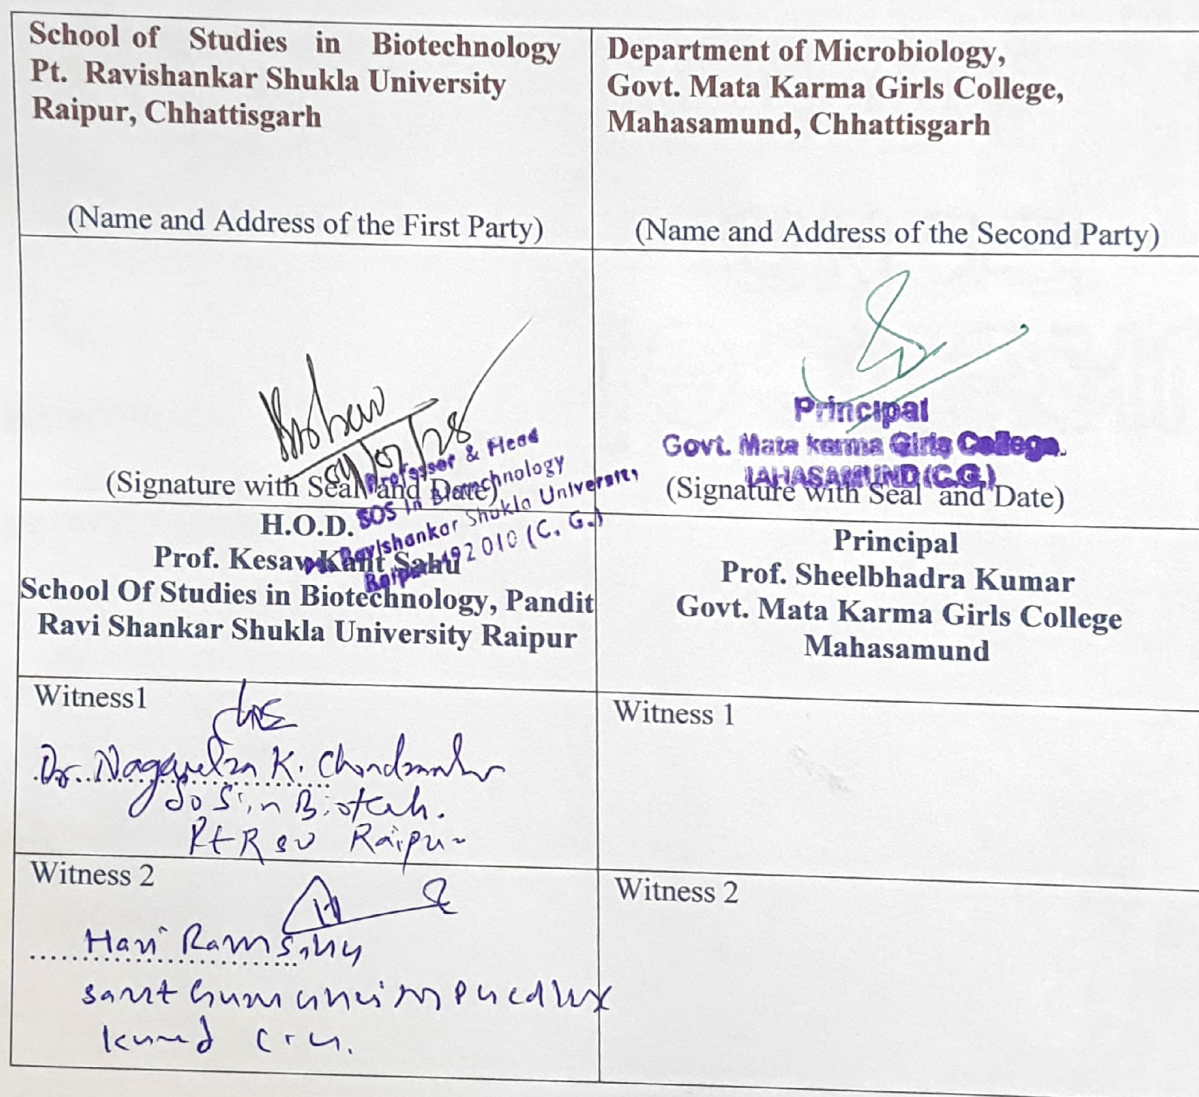 School of Studies in Biotechnology
Pt. Ravishankar Shukla University
Raipur, Chhattisgarh
(Name and Address of the First Party)
Department of Microbiology,
Govt. Mata Karma Girls College,
Mahasamund, Chhattisgarh
(Name and Address of the Second Party)
(Signature with Seal and Date)
Professor & Head
SOS in Biotechnology
Ravishankar Shukla University
Raipur 492 010 (C. G.)
Principal
Govt. Mata karma Girls College.
MAHASAMUND (C.G.)
(Signature with Seal and Date)
H.O.D.
Prof. Kesav Kant Sahu
School Of Studies in Biotechnology, Pandit
Ravi Shankar Shukla University Raipur
Principal
Prof. Sheelbhadra Kumar
Govt. Mata Karma Girls College
Mahasamund
Witness1
Dr. K.
SoS in Biotech.
Raipur
Witness 1
Witness 2
Hari Ram
Witness 2